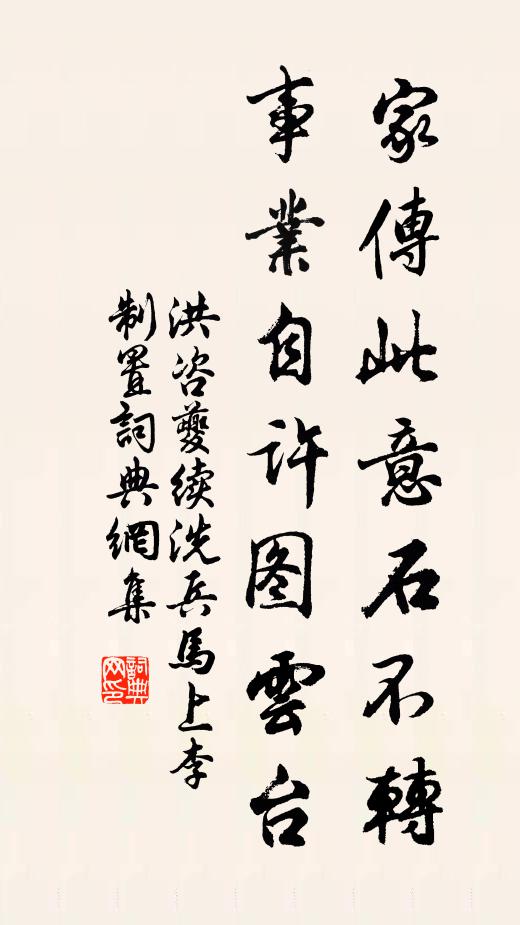 家傳此意石不轉
事業自許图雲台
洪咨夔续洗兵馬上李
制置詞典網集
詞典网印